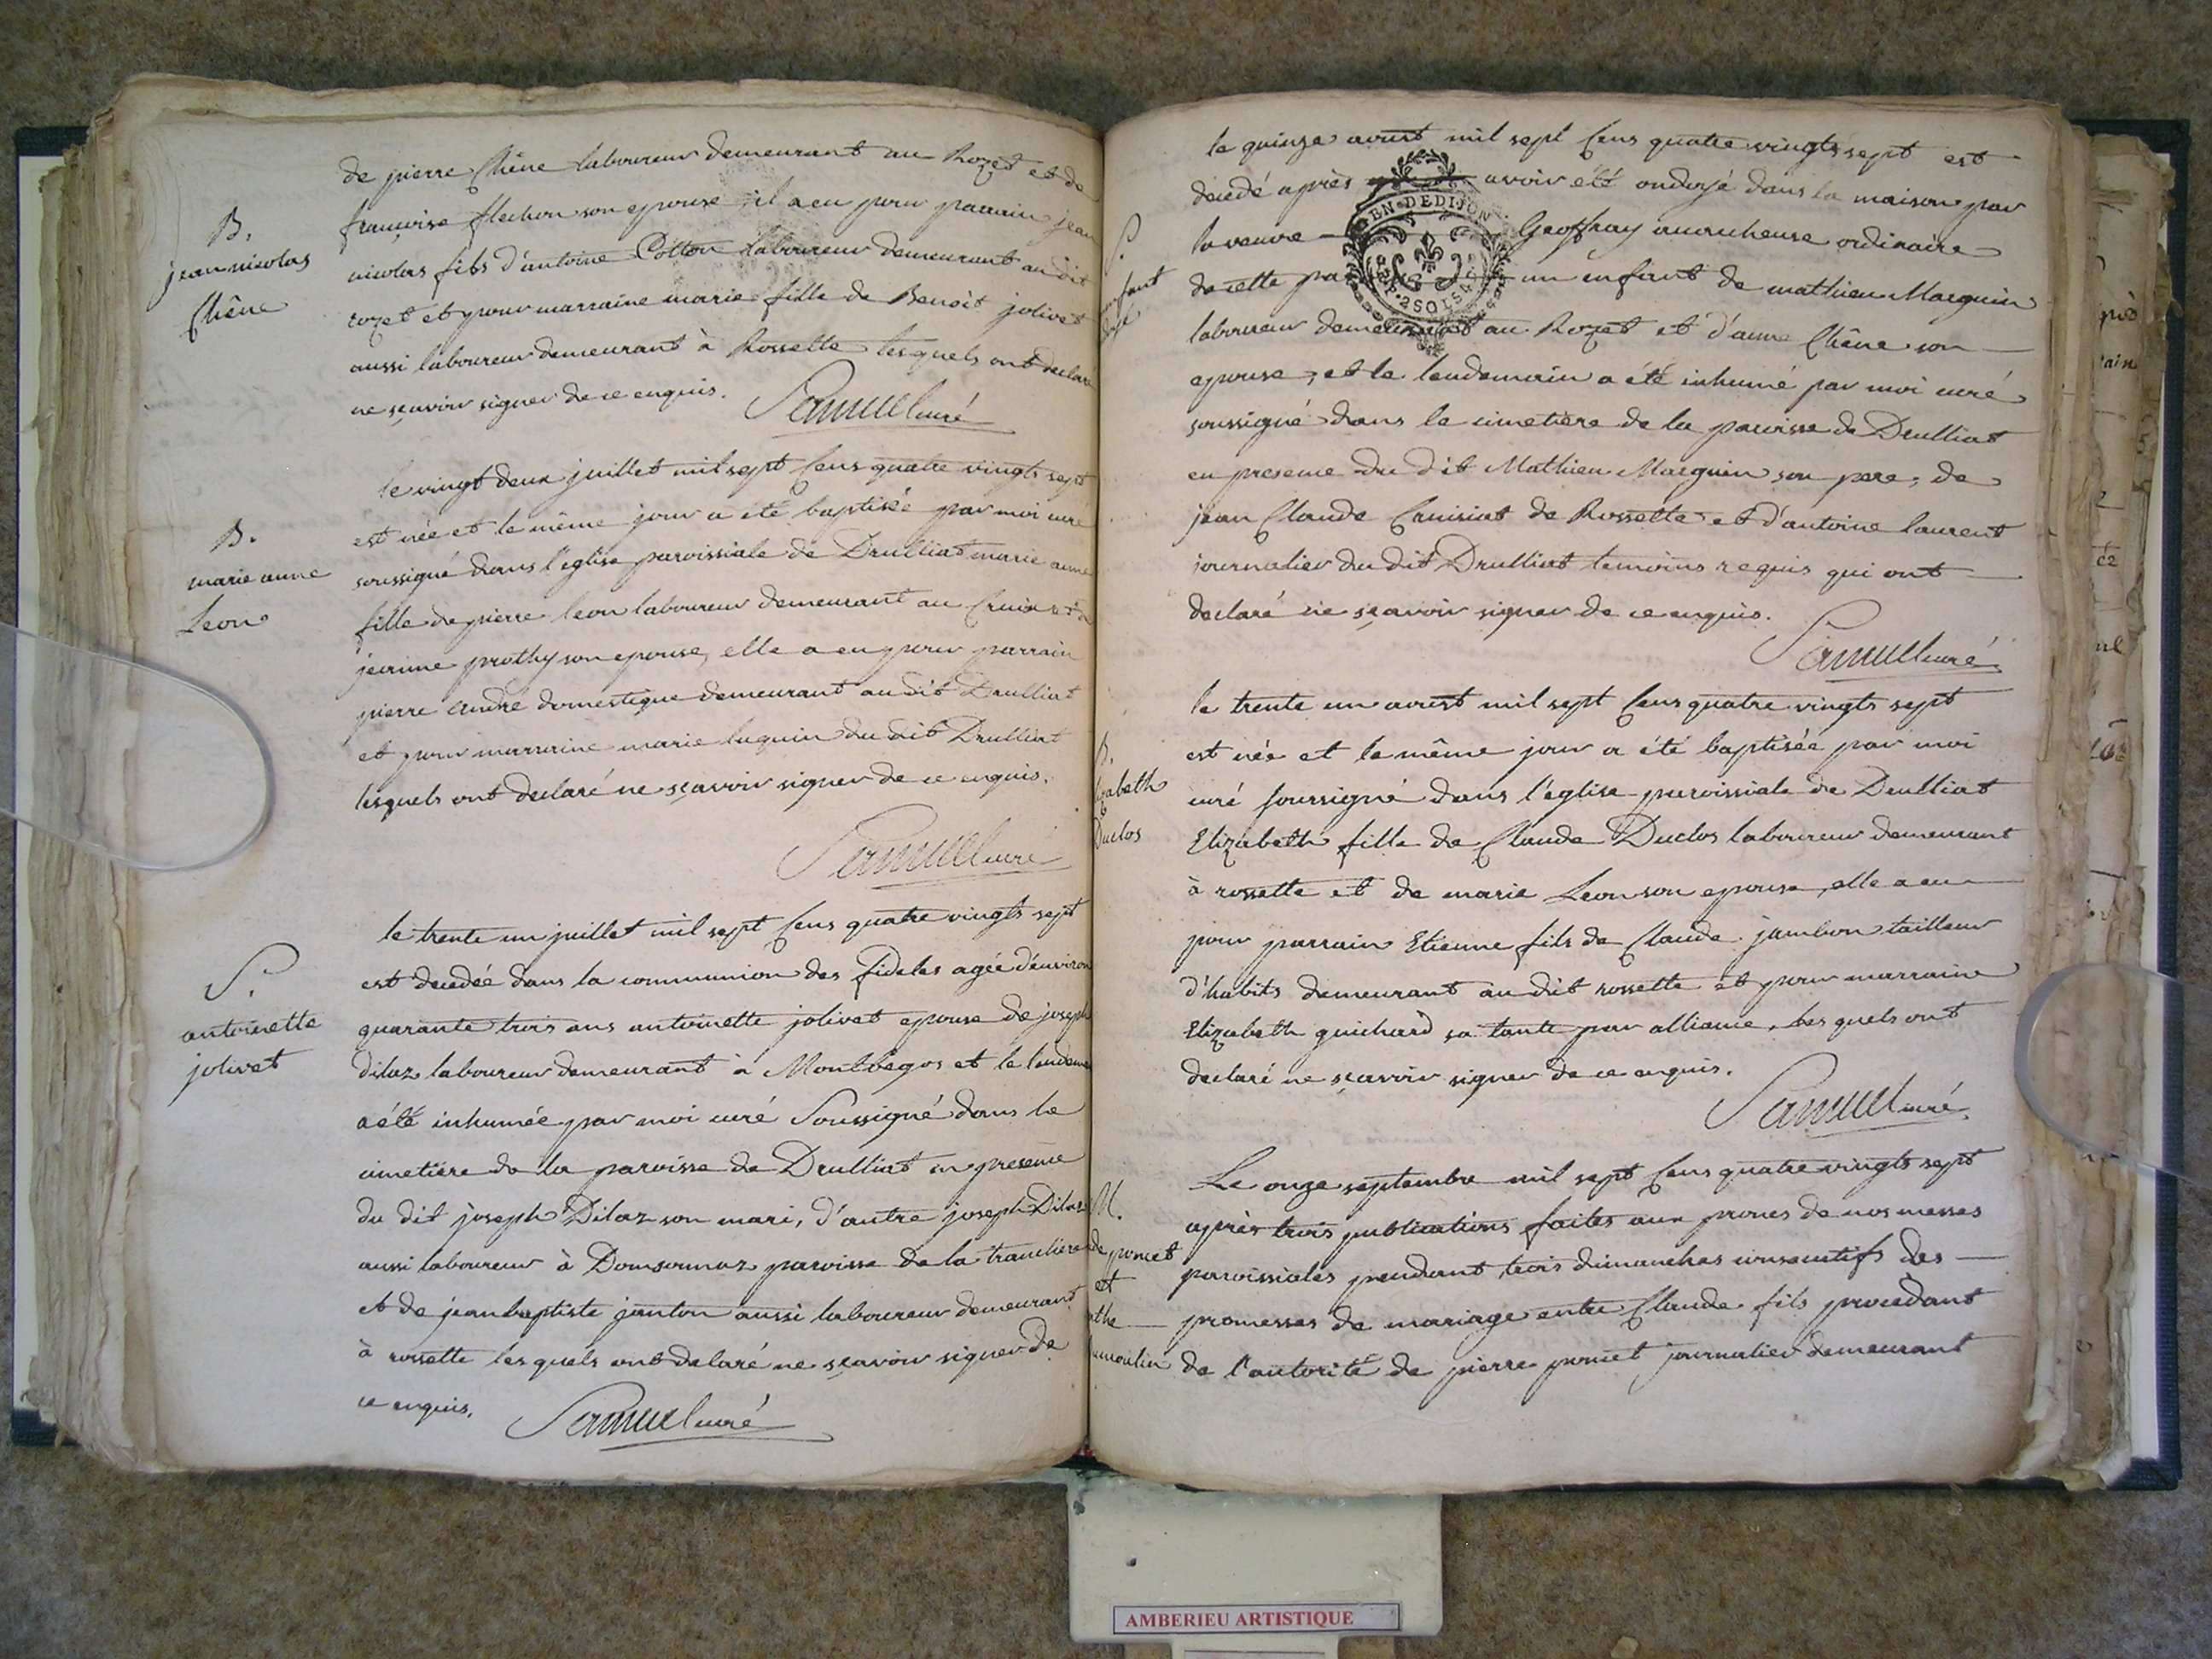 de pierre Chêne laboureur demeurant au Rozet et de
B.
jean nicolas
Chêne
françoise flechon son epouse, il a eu pour parrain jean
nicolas fils d'antoine Cotton laboureur demeurant au dit
rozet et pour marraine marie fille de Benoit jolivet
aussi laboureur demeurant à Rossette lesquels ont declaré
ne sçavoir signer de ce enquis.
Samuel curé
le vingt deux juillet mil sept Cens quatre vingts sept
B.
marie anne
Leon
est née et le même jour a été baptisée par moi curé
soussigné dans l'église paroissiale de Druilliat marie anne
fille de pierre leon laboureur demeurant au Cruix et de
jeanne prothy son epouse, elle a eu pour parrain
pierre André domestique demeurant au dit Druilliat
et pour marraine marie luquin du dit Druilliat
lesquels ont declaré ne sçavoir signer de ce enquis.
Samuel curé
le trente un juillet mil sept Cens quatre vingts sept
S.
antoinette
jolivet
est decedée dans la communion des fideles agée d'environ
quarante trois ans antoinette jolivet epouse de joseph
dilaz laboureur demeurant à Montbegos et le lendemain
a été inhumée par moi curé Soussigné dans le
cimetiere de la paroisse de Druilliat en presence
du dit joseph Dilaz son mari, d'autre joseph Dilaz
aussi laboureur à Domsonnas paroisse de la tranclière
et de jean baptiste janton aussi laboureur demeurant
à rossette lesquels ont delaré ne sçavoir signer de
ce enquis.
Samuel curé
le quinze aout mil sept Cens quatre vingts sept est
decedé après avoir été ondoyé dans la maison par
la veuve Geoffray accoucheuse ordinaire
EN. DE DIJON
2 SOLS
S.
enfant
de cette pa un enfant de mathieu Marguin
laboureur demeurant au Rozet et d'anne Chêne son
epouse, et le lendemain a été inhumé par moi curé
soussigné dans le cimetière de la paroisse de Druilliat
en presence du dit Mathieu Marguin son pere, de
jean Claude Cruisiat de Rossette et d'antoine laurent
journalier du dit Druilliat temoins requis qui ont
declaré ne sçavoir signer de ce enquis.
Samuel curé
le trente un aoust mil sept Cens quatre vingts sept
B.
zabeth
Duclos
est née et le même jour a été baptisée par moi
curé soussigné dans l'église paroissiale de Druilliat
Elizabeth fille de Claude Duclos laboureur demeurant
à rossette et de marie Leon son epouse, elle a eu
pour parrain Etienne fils de Claude jambon tailleur
d'habits demeurant au dit rossette et pour marraine
Elizabeth guichard sa tante par alliance, lesquels ont
declaré ne sçavoir signer de ce enquis.
Samuel curé.
Le onze septembre mil sept Cens quatre vingts sept
M.
de poncet
et
the
umoulin
après trois publications faites aux prones de nos messes
paroissiales pendant trois dimanches consecutifs des
promesses de mariage entre Claude fils procedant
de l'autorité de pierre poncet journalier demeurant
AMBERIEU ARTISTIQUE